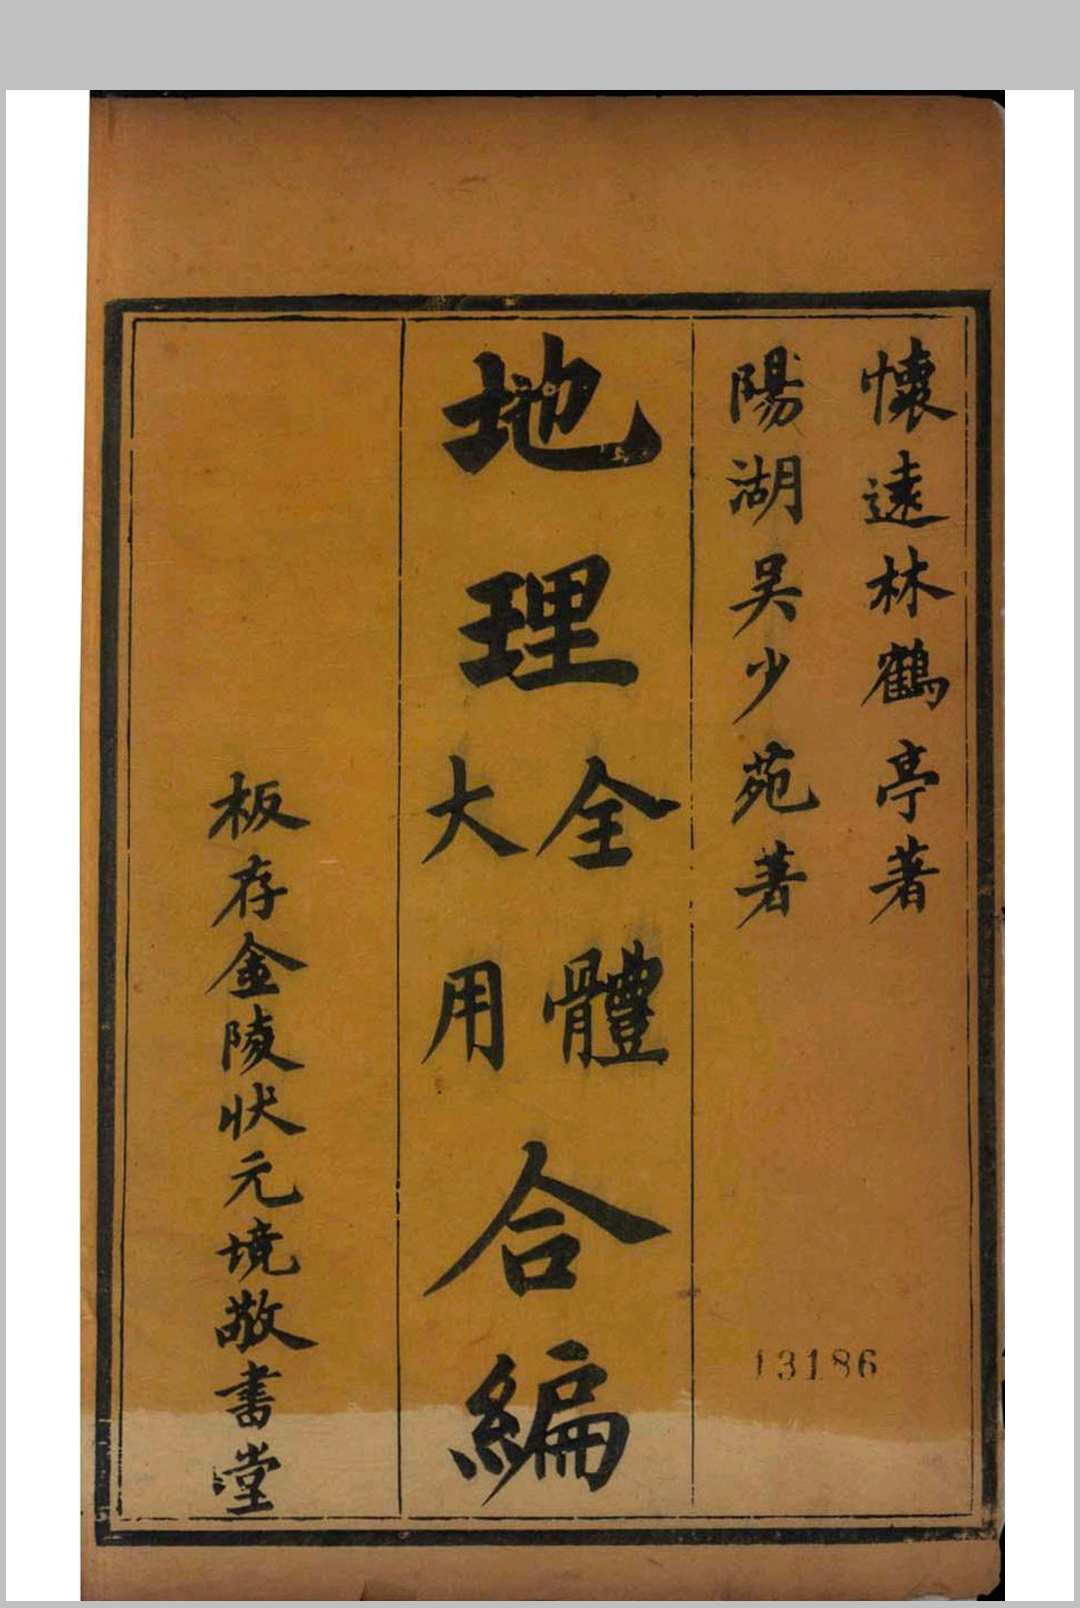 懷遠林鶴亭著
陽湖吴少苑著
地理全體大用合編
板存金陵狀元境敬書堂
13186